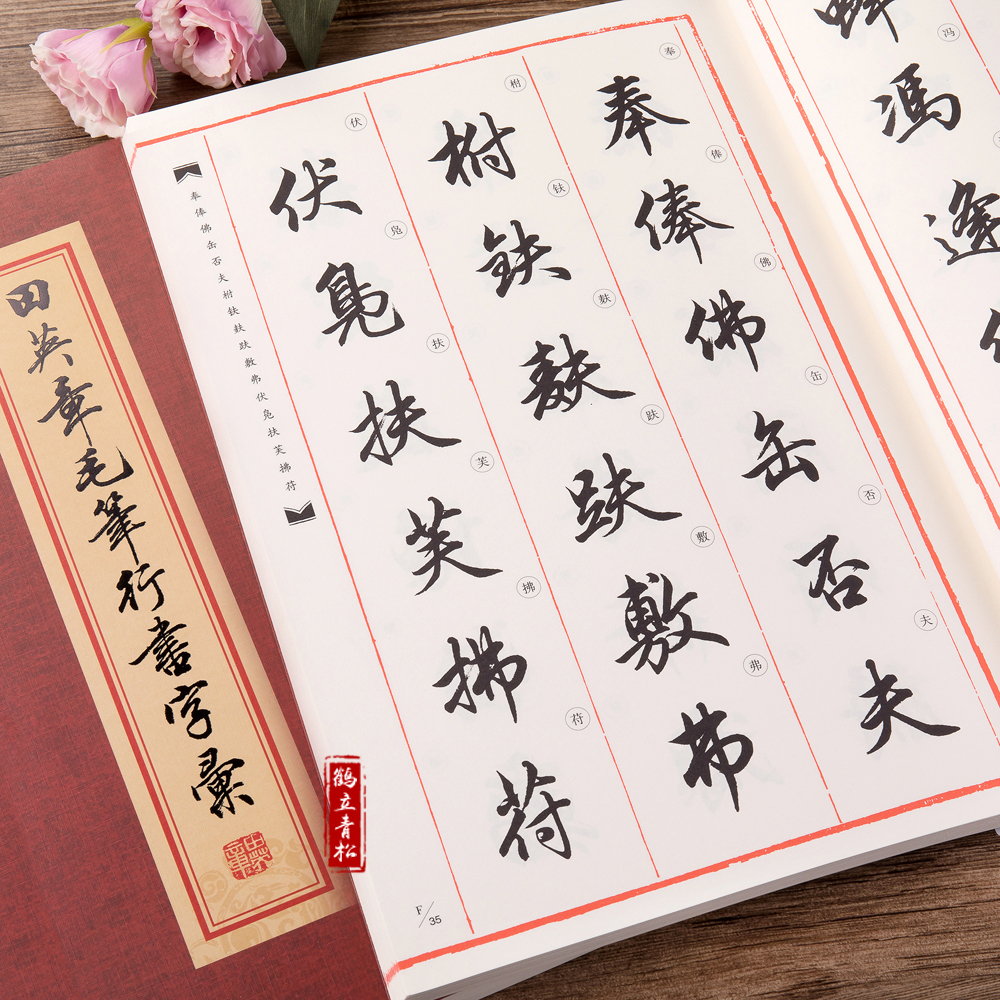 田英章毛筆行書字彙
冯
馮
逢
奉俸佛缶否夫
奉俸佛缶否夫
柎𫓧麸趺敷弗
柎鈇麸趺敷弗
伏凫扶芙拂苻
伏鳧扶芙拂苻
奉俸佛缶否夫柎𫓧麸趺敷弗伏凫扶芙拂苻
F/35
鹤立青松